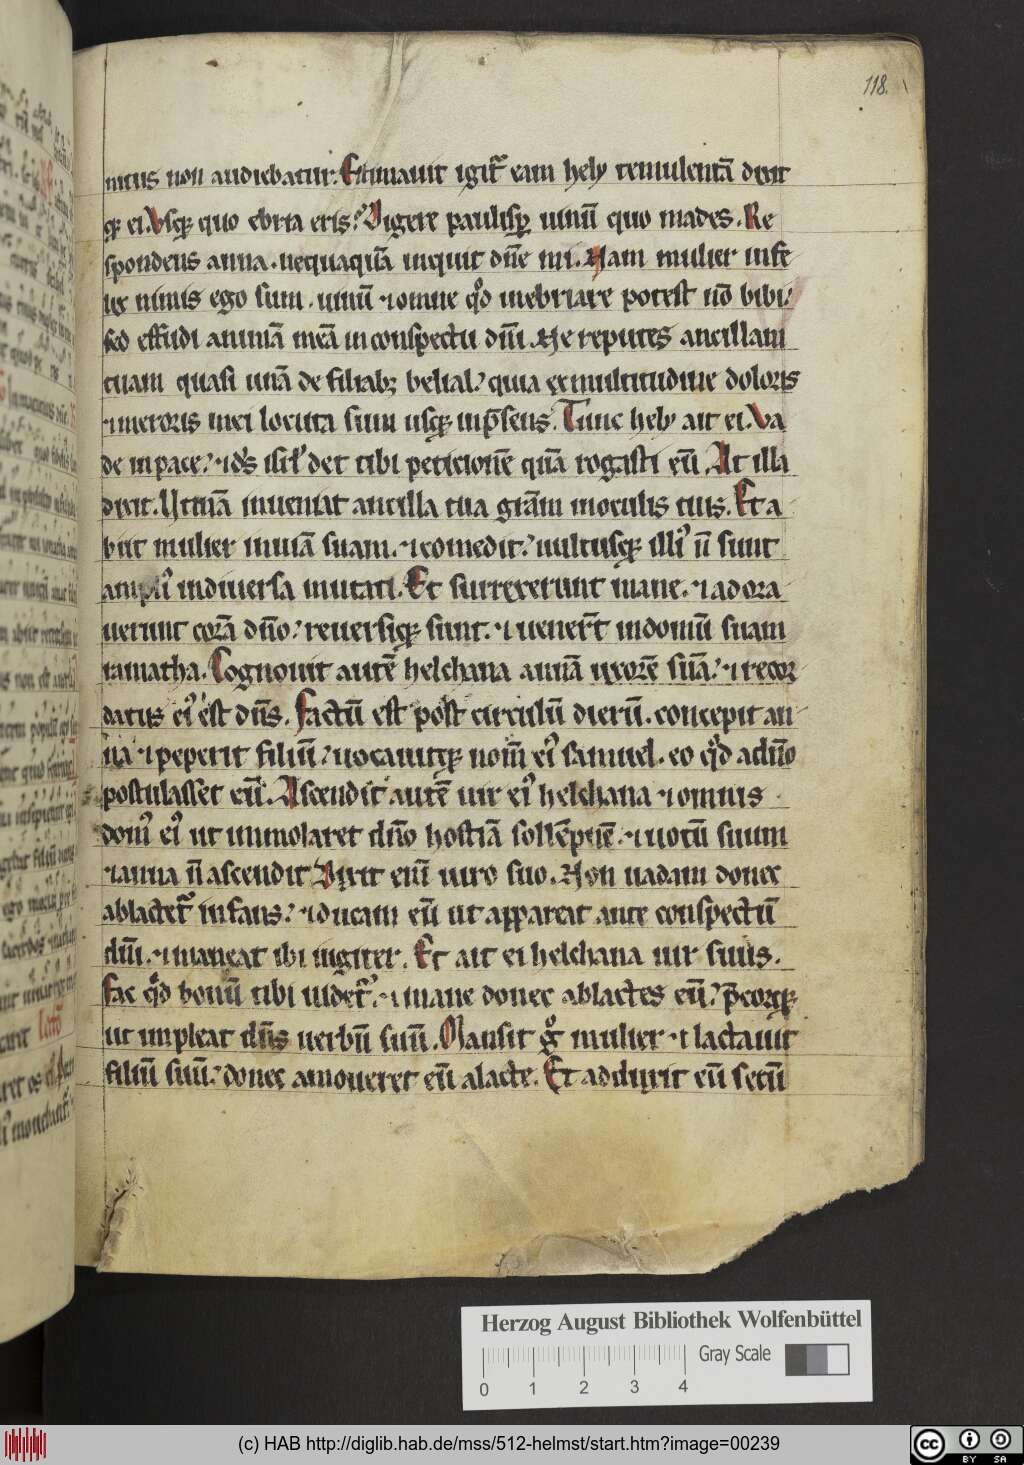 118.
nitus non audiebatur. Estimauit igit᷑ eam hely temulentā dixit
qꝫ ei. Vsqꝫ quo ebria eris? Digere paulisp̱ uinū quo mades. Re
spondens anna. nequaquā inquit dn̄e mi. Nam mulier infe
lix nimis ego sum. uinū ⁊ omne qͦd inebriare potest nō bibi.
sed effudi animā meā in conspectu dn̄i. Ne reputes ancillam
tuam quasi unā de filiabꝫ belial. quia ex multitudine doloris
⁊ meroris mei locuta sum usqꝫ inp̄sens. Tunc hely ait ei. Va
de in pace. ⁊ ds̄ isrl̄ det tibi peticionē quā rogasti eū. At illa
dixit. Utinā inueniat ancilla tua grām inoculis tuis. Et a
biit mulier inuiā suam. ⁊ comedit. uultusqꝫ illiꝰ n̄ sunt
ampliꝰ indiuersa mutati. Et surrexerunt mane. ⁊ adora
uerunt corā dn̄o. reuersiqꝫ sunt. ⁊ uener̄t indomū suam
ramatha. Cognouit autē helchana annā uxorē suā. ⁊ recor
datus eiꝰ est dn̄s. Factū est post circulū dierū. concepit an
na ⁊ peperit filiū. uocauitqꝫ nom̄ eiꝰ samuel. eo qͦd adn̄o
postulasset eū. Ascendit autē uir eiꝰ helchana ⁊ omnis
domꝰ eiꝰ ut immolaret dn̄o hostiā sollēpnē. ⁊ uotū suum
⁊ anna n̄ ascendit Dixit enī uiro suo. Non uadam donec
ablactet᷑ infans. ⁊ ducam eū ut appareat ante conspectū
dn̄i. ⁊ maneat ibi iugiter. Et ait ei helchana uir suus.
Fac qͦd bonū tibi uidet᷑. ⁊ mane donec ablactes eū. p̄corqꝫ
ut impleat dn̄s uerbū suū. Mansit gͦ mulier ⁊ lactauit
filiū suū. donec amoueret eū alacte. Et adduxit eū secū
Herzog August Bibliothek Wolfenbüttel
Gray Scale
0 1 2 3 4
(c) HAB http://diglib.hab.de/mss/512-helmst/start.htm?image=00239
cc BY SA